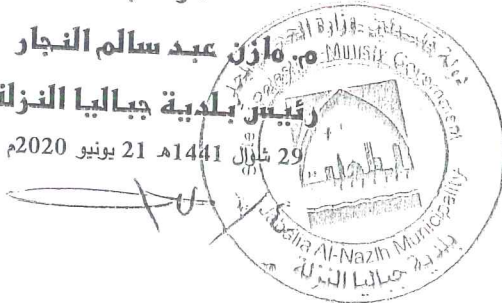 م. مازن عبد سالم النجار
رئيس بلدية جباليا النزلة
29 شوال 1441هـ 21 يونيو 2020م
Jabalia Al-Nazlh Municipality
بلدية جباليا النزلة